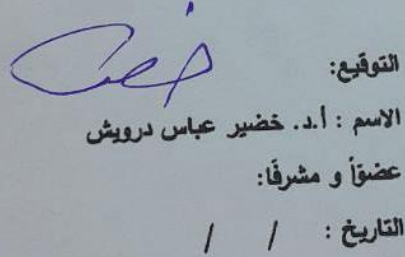 التوقيع:
الاسم : أ.د. خضير عباس درويش
عضوًا و مشرفًا:
التاريخ : / /